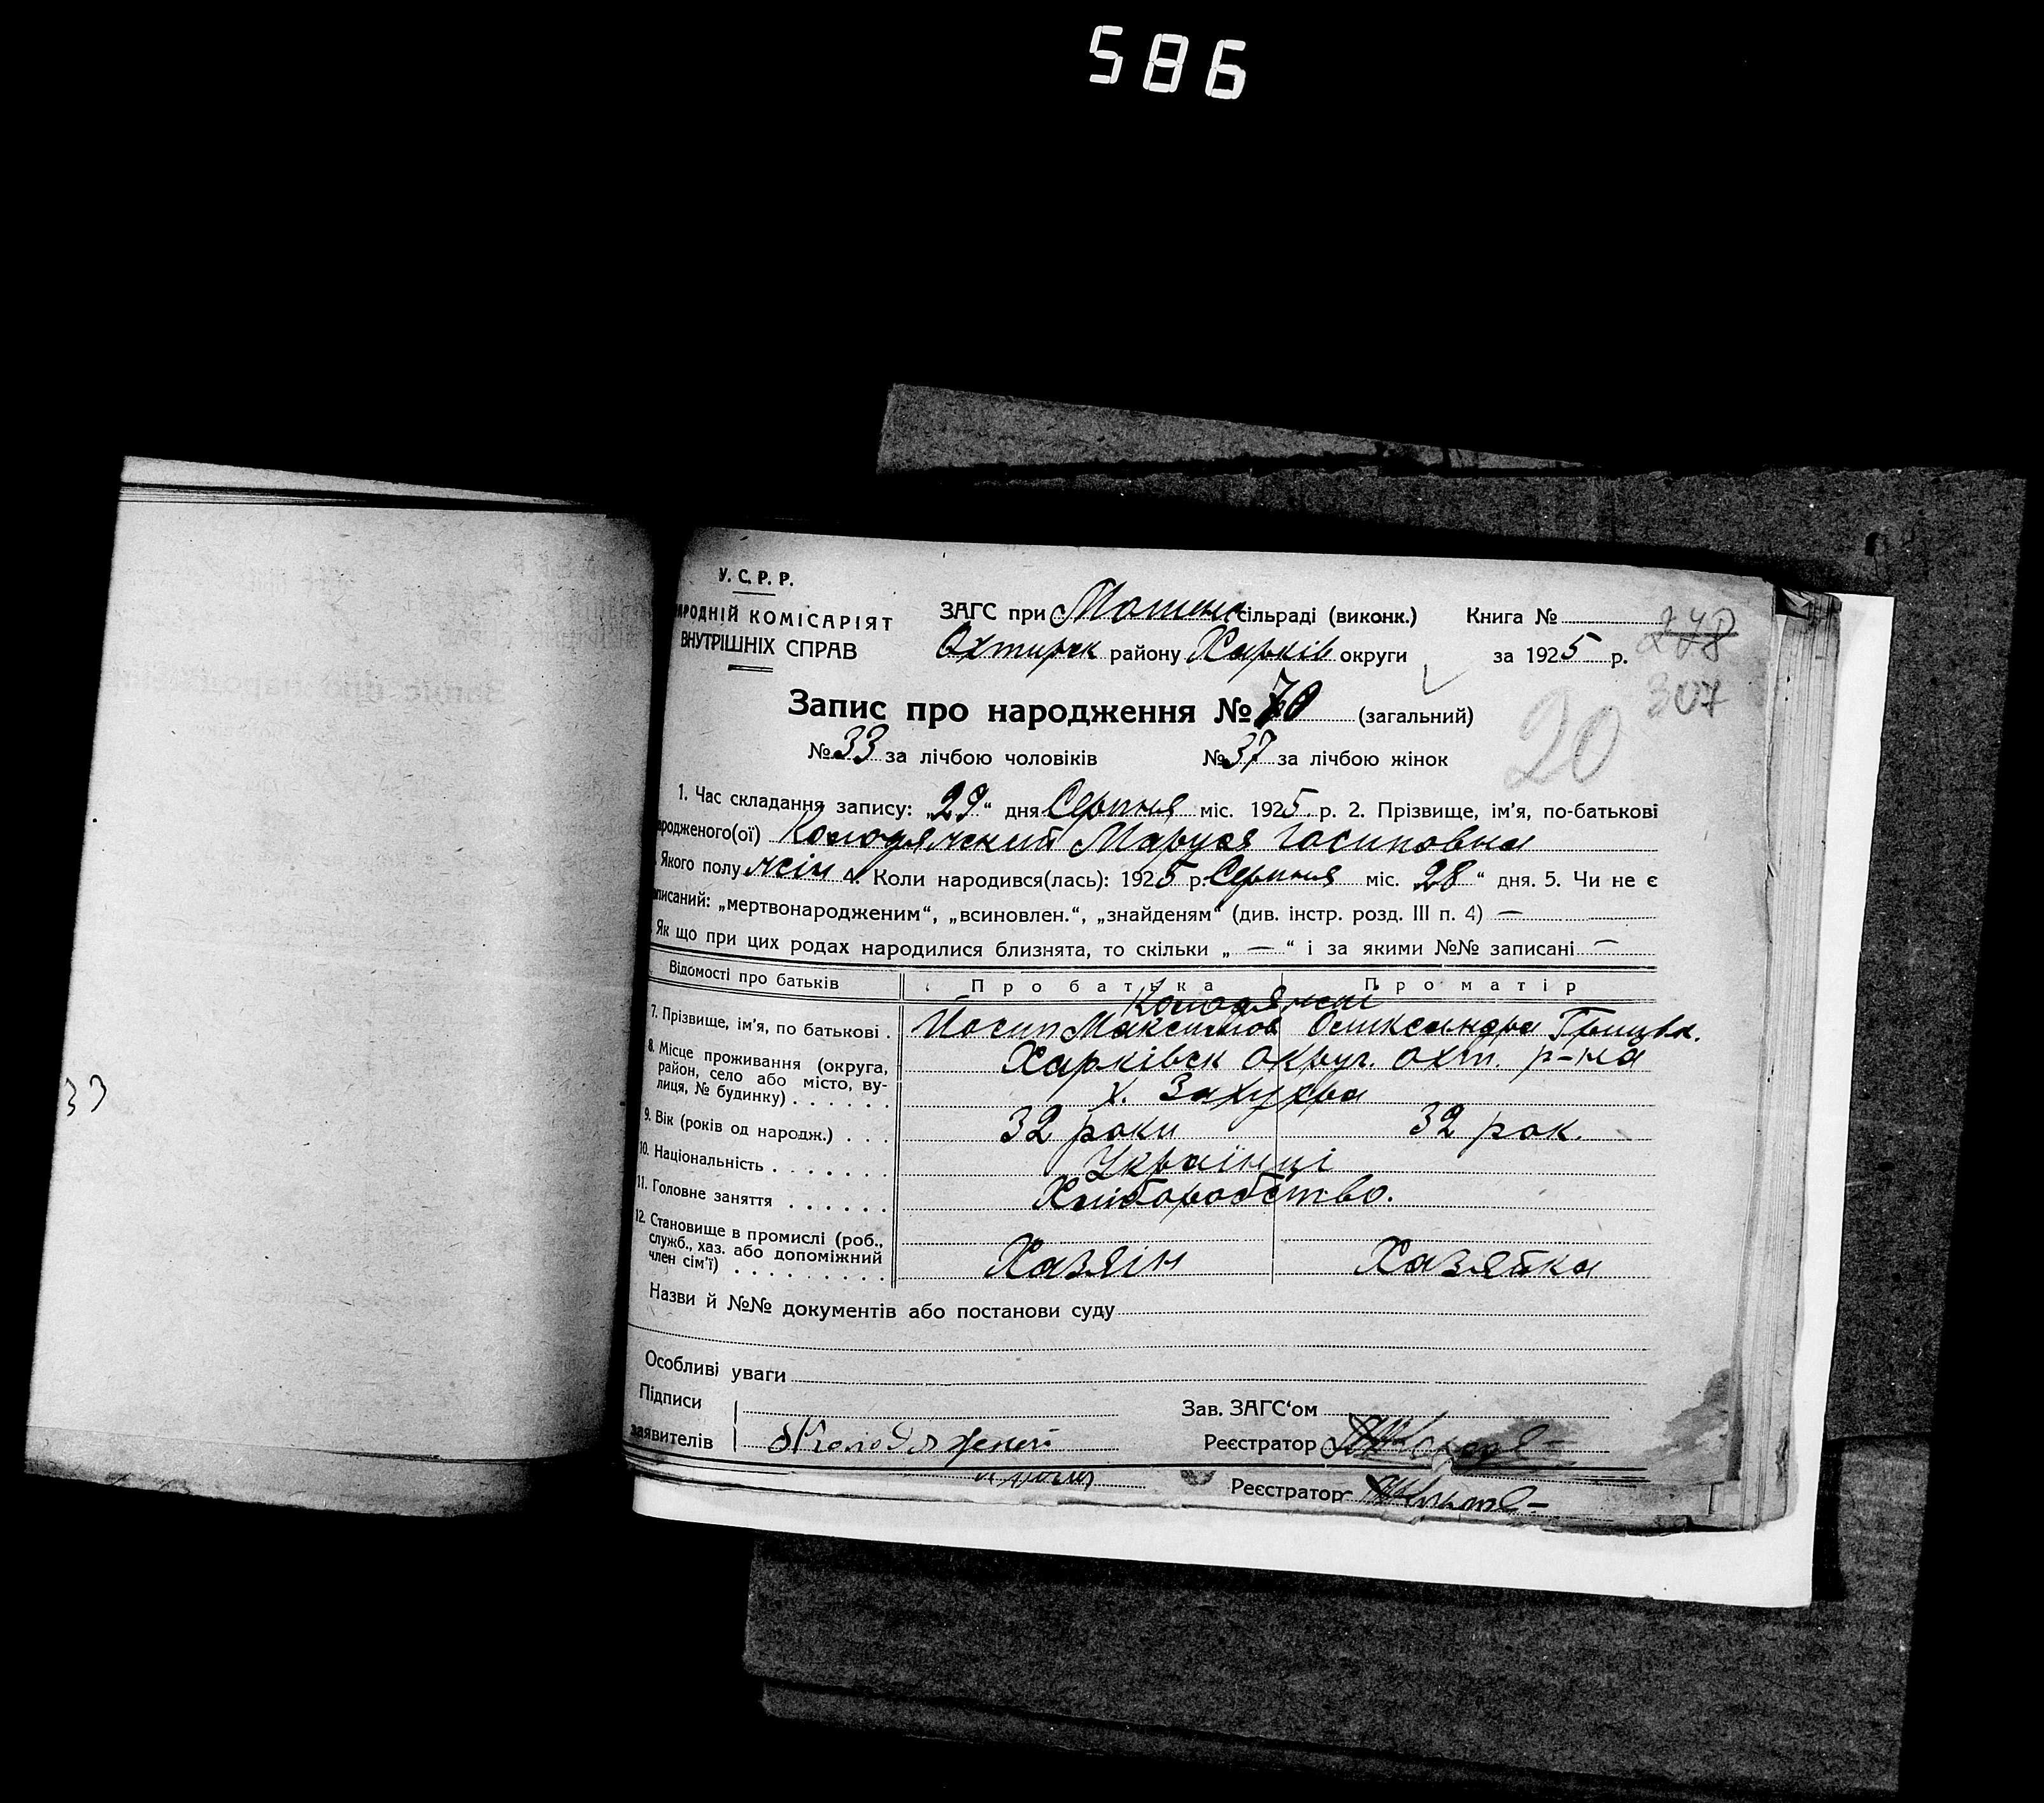 586
У. С. Р. Р.
АРОДНІЙ КОМІСАРІЯТ
ВНУТРІШНІХ СПРАВ
ЗАГС при Мошен сільраді (виконк.) Книга №
Охтирск району Харків округи за 1925 р.
278
307
20
Запис про народження № 70 (загальний)
№ 33 за лічбою чоловіків № 37 за лічбою жінок
1. Час складання запису: „29“ дня Серпня міс. 1925 р. 2. Прізвище, ім’я, по-батькові
ародженого(ої) Колодяжний Маруся Іосиповна
Якого полу жін 4. Коли народився(лась): 1925 р. Серпня міс. 28“ дня. 5. Чи не є
писаний: „мертвонародженим“, „всиновлен.“, „знайденям“ (див. інстр. розд. III п. 4) —
Як що при цих родах народилися близнята, то скільки „ — “ і за якими №№ записані —
Відомості про батьків Про батька Про матір
Колодяжні
7. Прізвище, ім’я, по батькові . Йосип Максимов Олександра Грицьк.
8. Місце проживання (округа, район, село або місто, вулиця, № будинку) . . . . . . Харківск округ. Охт. р-на
х.
9. Вік (років од народж.) . . . 32 роки 32 рок.
10. Національність . . . . . . . Українці
11. Головне заняття . . . . . . Хліборобство.
12. Становище в промислі (роб., служб., хаз. або допоміжний член сім’ї) . . . . . . . . . Хазяін Хазяйка
Назви й №№ документів або постанови суду
Особливі уваги
Підписи
заявителів Колодяжний
Зав. ЗАГС‘ом
Реєстратор
Реєстратор
33